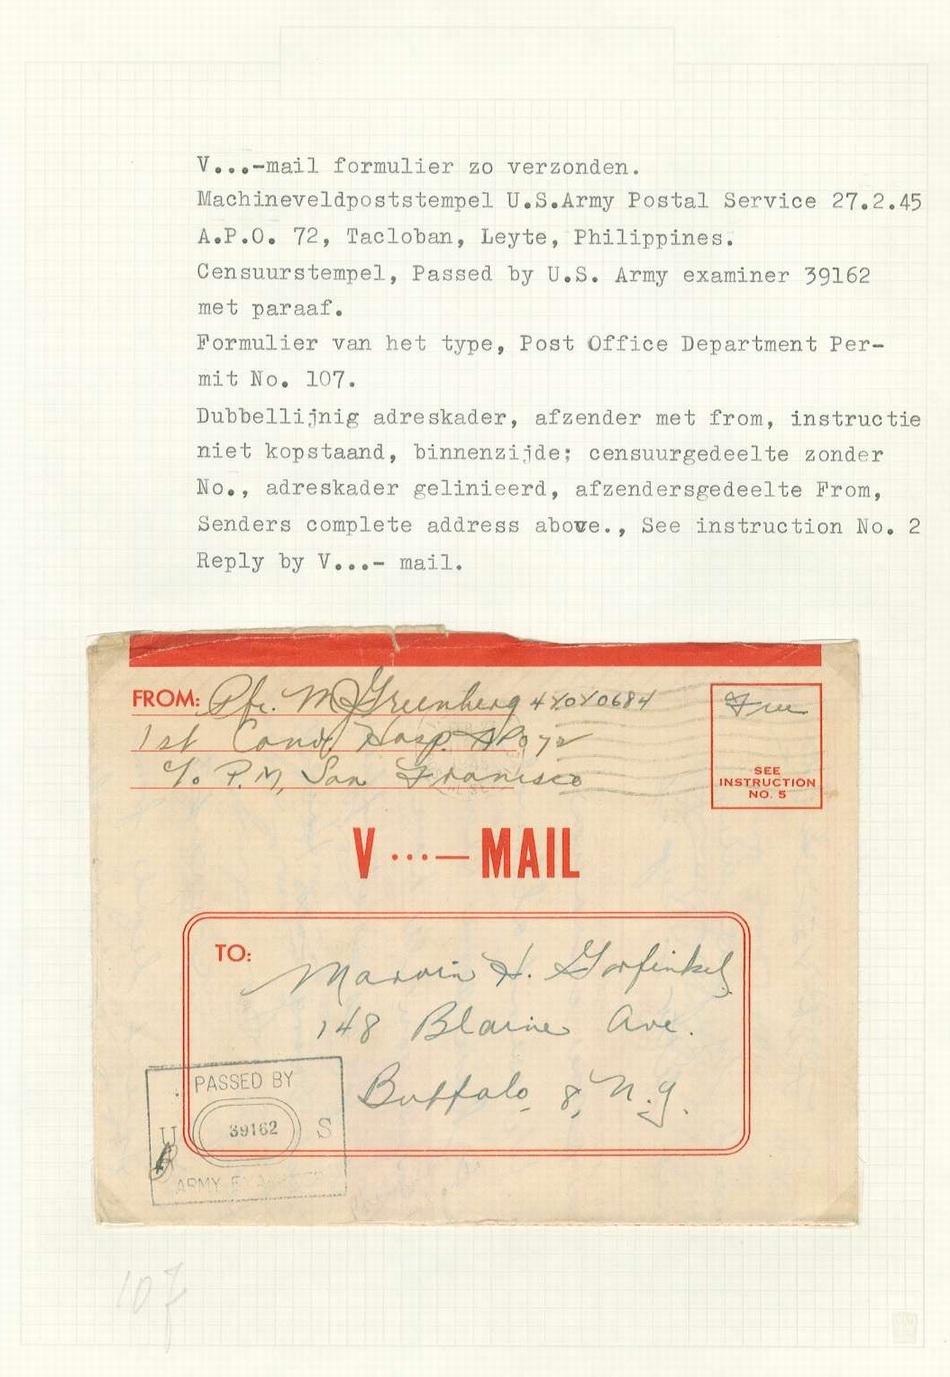 V...-mail formulier zo verzonden.
Machineveldpoststempel U.S.Army Postal Service 27.2.45
A.P.O. 72, Tacloban, Leyte, Philippines.
Censuurstempel, Passed by U.S. Army examiner 39162
met paraaf.
Formulier van het type, Post Office Department Per-
mit No. 107.
Dubbellijnig adreskader, afzender met from, instructie
niet kopstaand, binnenzijde; censuurgedeelte zonder
No., adreskader gelinieerd, afzendersgedeelte From,
Senders complete address above., See instruction No. 2
Reply by V...- mail.
FROM: Pfc. M Greenberg
1st Conv. Hosp. APO 72
c/o P.M, San Francisco
Free
SEE
INSTRUCTION
NO. 5
V ...— MAIL
TO:
Marvin H. Gorfinkel
148 Blaine Ave.
Buffalo, 8, N.Y.
PASSED BY
U 39162 S
ARMY EXAMINER
107